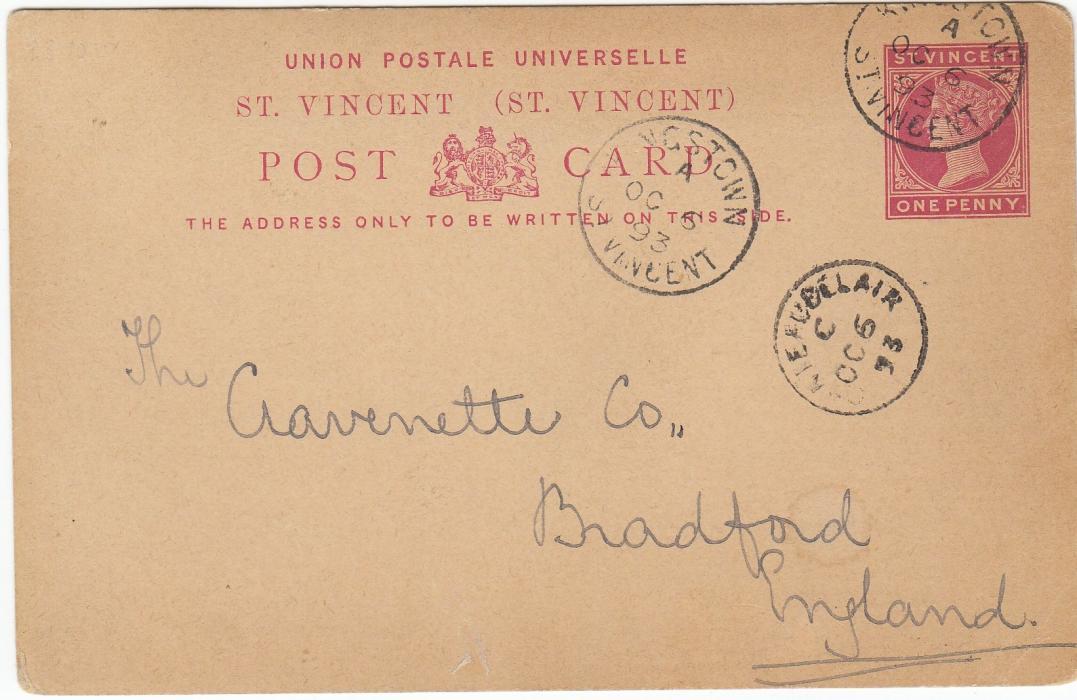 UNION POSTALE UNIVERSELLE
ST. VINCENT (ST. VINCENT)
POST CARD
THE ADDRESS ONLY TO BE WRITTEN ON THIS SIDE.
ST VINCENT
ONE PENNY
KINGSTOWN
A
OC 6
93
ST VINCENT
KINGSTOWN
A
OC 6
93
ST VINCENT
BELLAIR
C
OC 6
93
The
Cravenette Co.,
Bradford
England.